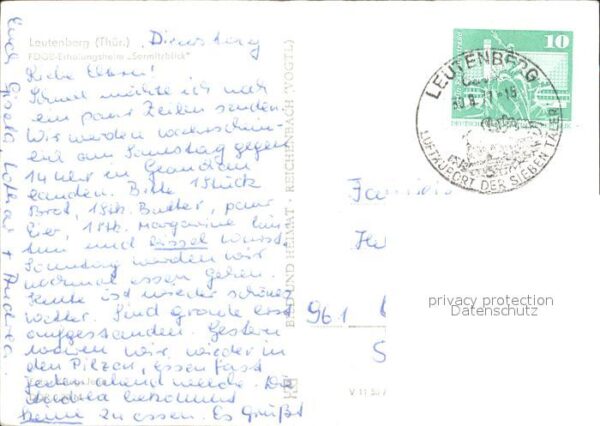 Leutenberg (Thür.)
FDGB-Erholungsheim „Sormitzblick"
Dienstag
Liebe Eltern!
Schnell möchte ich noch
ein paar Zeilen senden.
Wir werden wahrschein-
lich am Samstag gegen
14 Uhr in
landen. Bitte 1 Stück
Brot, 1 Stk. Butter, paar
Eier, 1 Stk. Margarine
und bissel Wurst.
Sonntag werden wir
nochmal essen gehen.
Heute ist wieder schönes
Wetter. Sind gerade erst
aufgestanden. Gestern
waren wir wieder in
den Pilzen, essen fast
jeden abend welche. Die
Andrea bekommt
keine zu essen. Es Grüßt
Euch Gisela, Lothar + Andrea.
BILD UND HEIMAT · REICHENBACH (VOGTL)
V 11 50
10
LEUTENBERG
LUFTKURORT DER SIEBEN TÄLER
Familie
961
privacy protection
Datenschutz